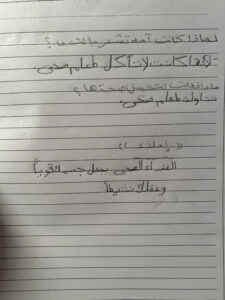 لماذا كانت آمنة تشعر بالتعب؟
لأنها كانت لا تأكل طعام صحي.
ماذا فعلت لتحسن صحتها؟
تناولت طعام صحي.
(( إملاء ))
الغذاء الصحي يجعل جسمك قوياً
وعقلك نشيطاً